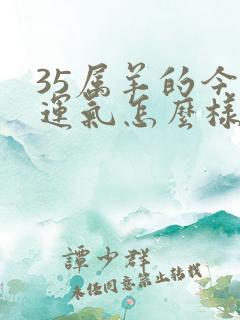 35属羊的今
運氣怎麼樣
譚少群
未经同意禁止转载